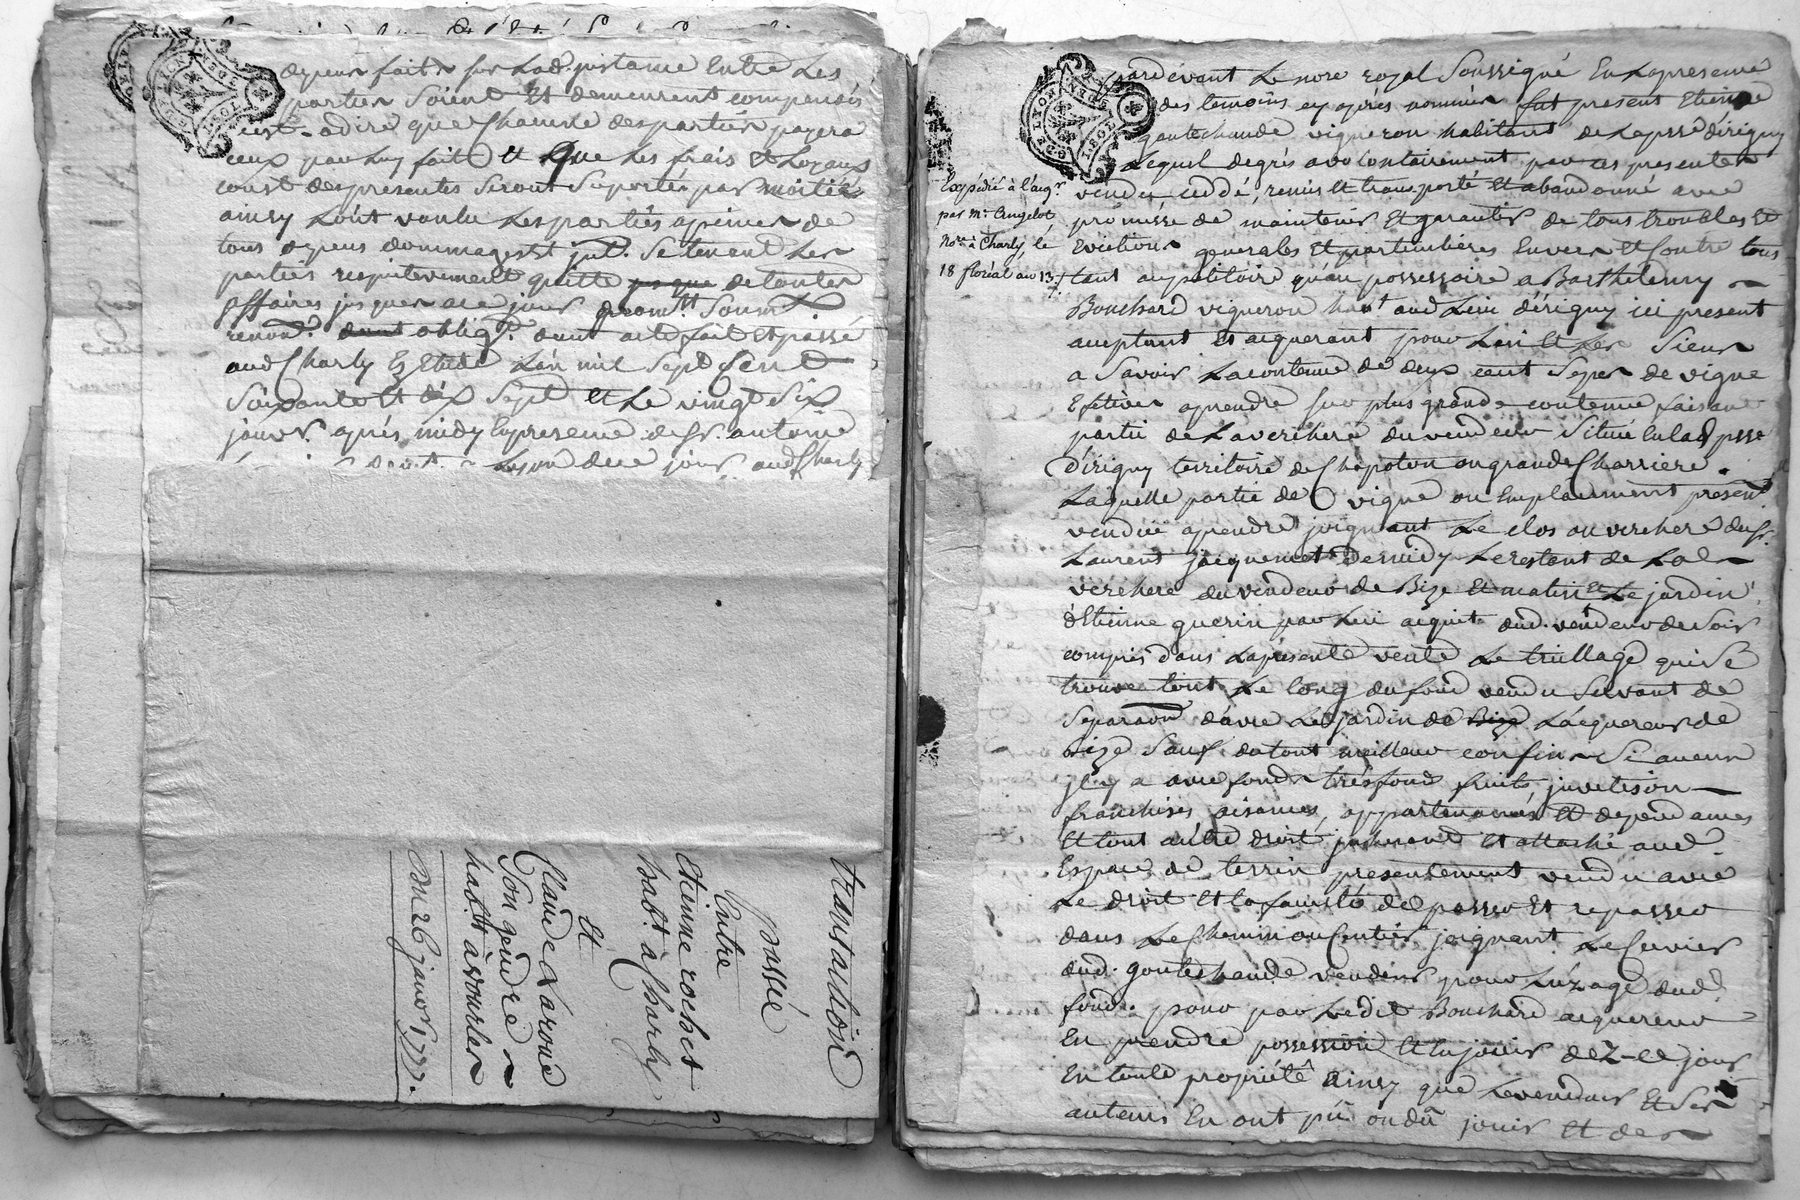 depens faits sur lad. instance Entre Les
parties Soient Et demeurent compensés
cest-adire que Chacune des parties payera
ceux par Luy faits Et Que Les frais Et Loyaux
coust des presentes Seront Suportés par moitiés
ainsy Lont voulu Les parties apeines de
tous depens dommages Et jnt. Se tenant Les
parties respectivement quitte de toutes
affaires jusques a ce jour
oblign. dont acte fait Et passé
aud Charly En Etude L'an mil Sept Cent
Soixante Et dix Sept Et Le vingt Six
janvr. après midy En presence de Sr. antoine
Lyon de ce jour aud Charly
transaction
passée
Entre
Etienne rochet
habt. à Charly
Et
Claude Laroue
Son gendre
habtt. à vourles
Du 26 janvr. 1777.
DE LYON
pardevant Le nore royal Soussigné En La presence
des temoins cy après nommés fut present Etienne
goutechaude vigneron habitant de La psse dirigny
Lequel degrés a volontairement par ces presentes
vendu ceddé, remis Et transporté Et abandonné avec
promesse de maintenir Et garantir de tous troubles Et
Evictions generales Et particulières Envers Et Contre tous
tant au petitoire qu'au possessoire a Barthelemy
Bouchard vigneron habt. aud Lieu d'irigny ici present
acceptant Et acquerant pour Lui Et Les Siens
a Savoir La contenue de deux cent Seps de vigne
Efetives aprendre Sur plus grande contenue faisant
partie de La verchere du vendeur Situé En lad psse
d'irigny territoire de Chapoton ou grande Charriere.
Laquelle partie de vigne ou Emplacement present
vendue aprendre joignant Le clos ou verchere du Sr.
Laurent jacquemet De midy Le restant de Lad
verchere du vendeur de Bize Et matin Et Le jardin
d'Etienne guerin par Lui acquit dud. vendeur de Soir
compris dans La presente vente Le trillage qui Se
trouve tout Le long du fond vendu Servant de
Separaon d'avec Le jardin de Bize L'acquereur de
Bize Sauf du tout meilleur confins Si aucun
jl y a avec fonds tresfond fruits,
franchises aisances, appartenances Et dependances
Et tout autre droit jnherent Et attaché aud
Espace de terrin presentement vendu avec
Le droit Et la faculté de passer Et repasser
dans Le Chemin ou Sentier joignant Le Cuvier
dud. goutechaude vendeur pour L'uzage dud
fond. pour par Ledit Bouchard acquereur
En prendre possession Et En jouir dez-ce jour
En toute propriété ainsy que Le vendeur Et Ses
auteurs En ont pû ou dû jouir Et des
Expédié à l'acqr.
par Mr. Angelot
Nore. à Charly, le
18 floréal an 13